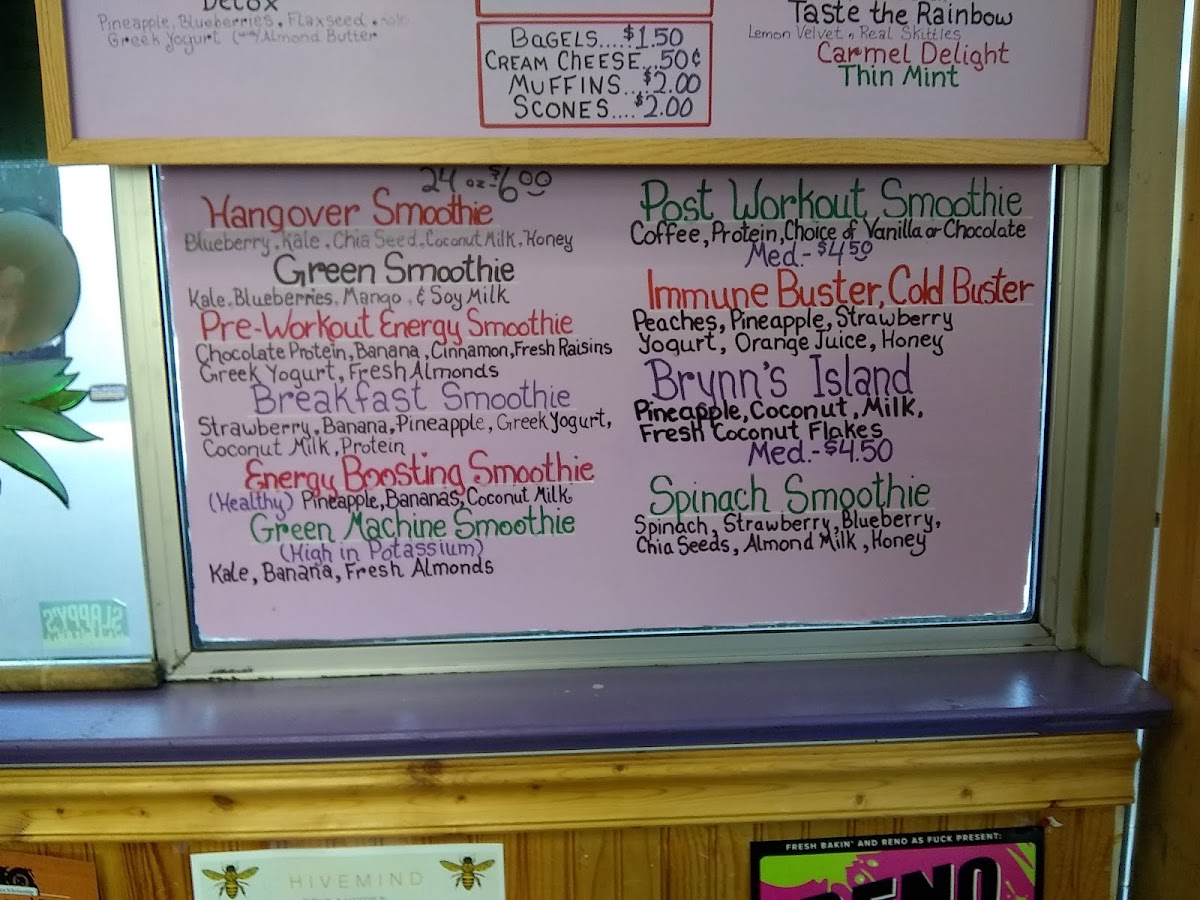 Detox
Pineapple, Blueberries, Flaxseed, Kale
Greek Yogurt (with) Almond Butter
BAGELS....$1.50
CREAM CHEESE...50¢
MUFFINS...$2.00
SCONES....$2.00
Taste the Rainbow
Lemon Velvet, Real Skittles
Carmel Delight
Thin Mint
24 oz-$6.00
Hangover Smoothie
Blueberry, Kale, Chia Seed, Coconut Milk, Honey
Green Smoothie
Kale, Blueberries, Mango, & Soy Milk
Pre-Workout Energy Smoothie
Chocolate Protein, Banana, Cinnamon, Fresh Raisins
Greek Yogurt, Fresh Almonds
Breakfast Smoothie
Strawberry, Banana, Pineapple, Greek Yogurt,
Coconut Milk, Protein
Energy Boosting Smoothie
(Healthy) Pineapple, Bananas, Coconut Milk
Green Machine Smoothie
(High in Potassium)
Kale, Banana, Fresh Almonds
Post Workout Smoothie
Coffee, Protein, Choice of Vanilla or Chocolate
Med.-$4.50
Immune Buster, Cold Buster
Peaches, Pineapple, Strawberry
Yogurt, Orange Juice, Honey
Brynn's Island
Pineapple, Coconut, Milk,
Fresh Coconut Flakes
Med.-$4.50
Spinach Smoothie
Spinach, Strawberry, Blueberry,
Chia Seeds, Almond Milk, Honey
SLAPPY'S
HIVEMIND
FRESH BAKIN' AND RENO AS FUCK PRESENT:
RENO